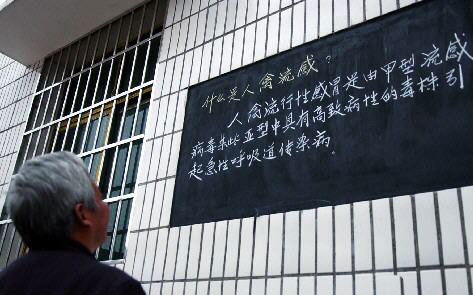 什么是人禽流感？
人禽流行性感冒是由甲型流感
病毒某些亚型中具有高致病性的毒株引
起急性呼吸道传染病。